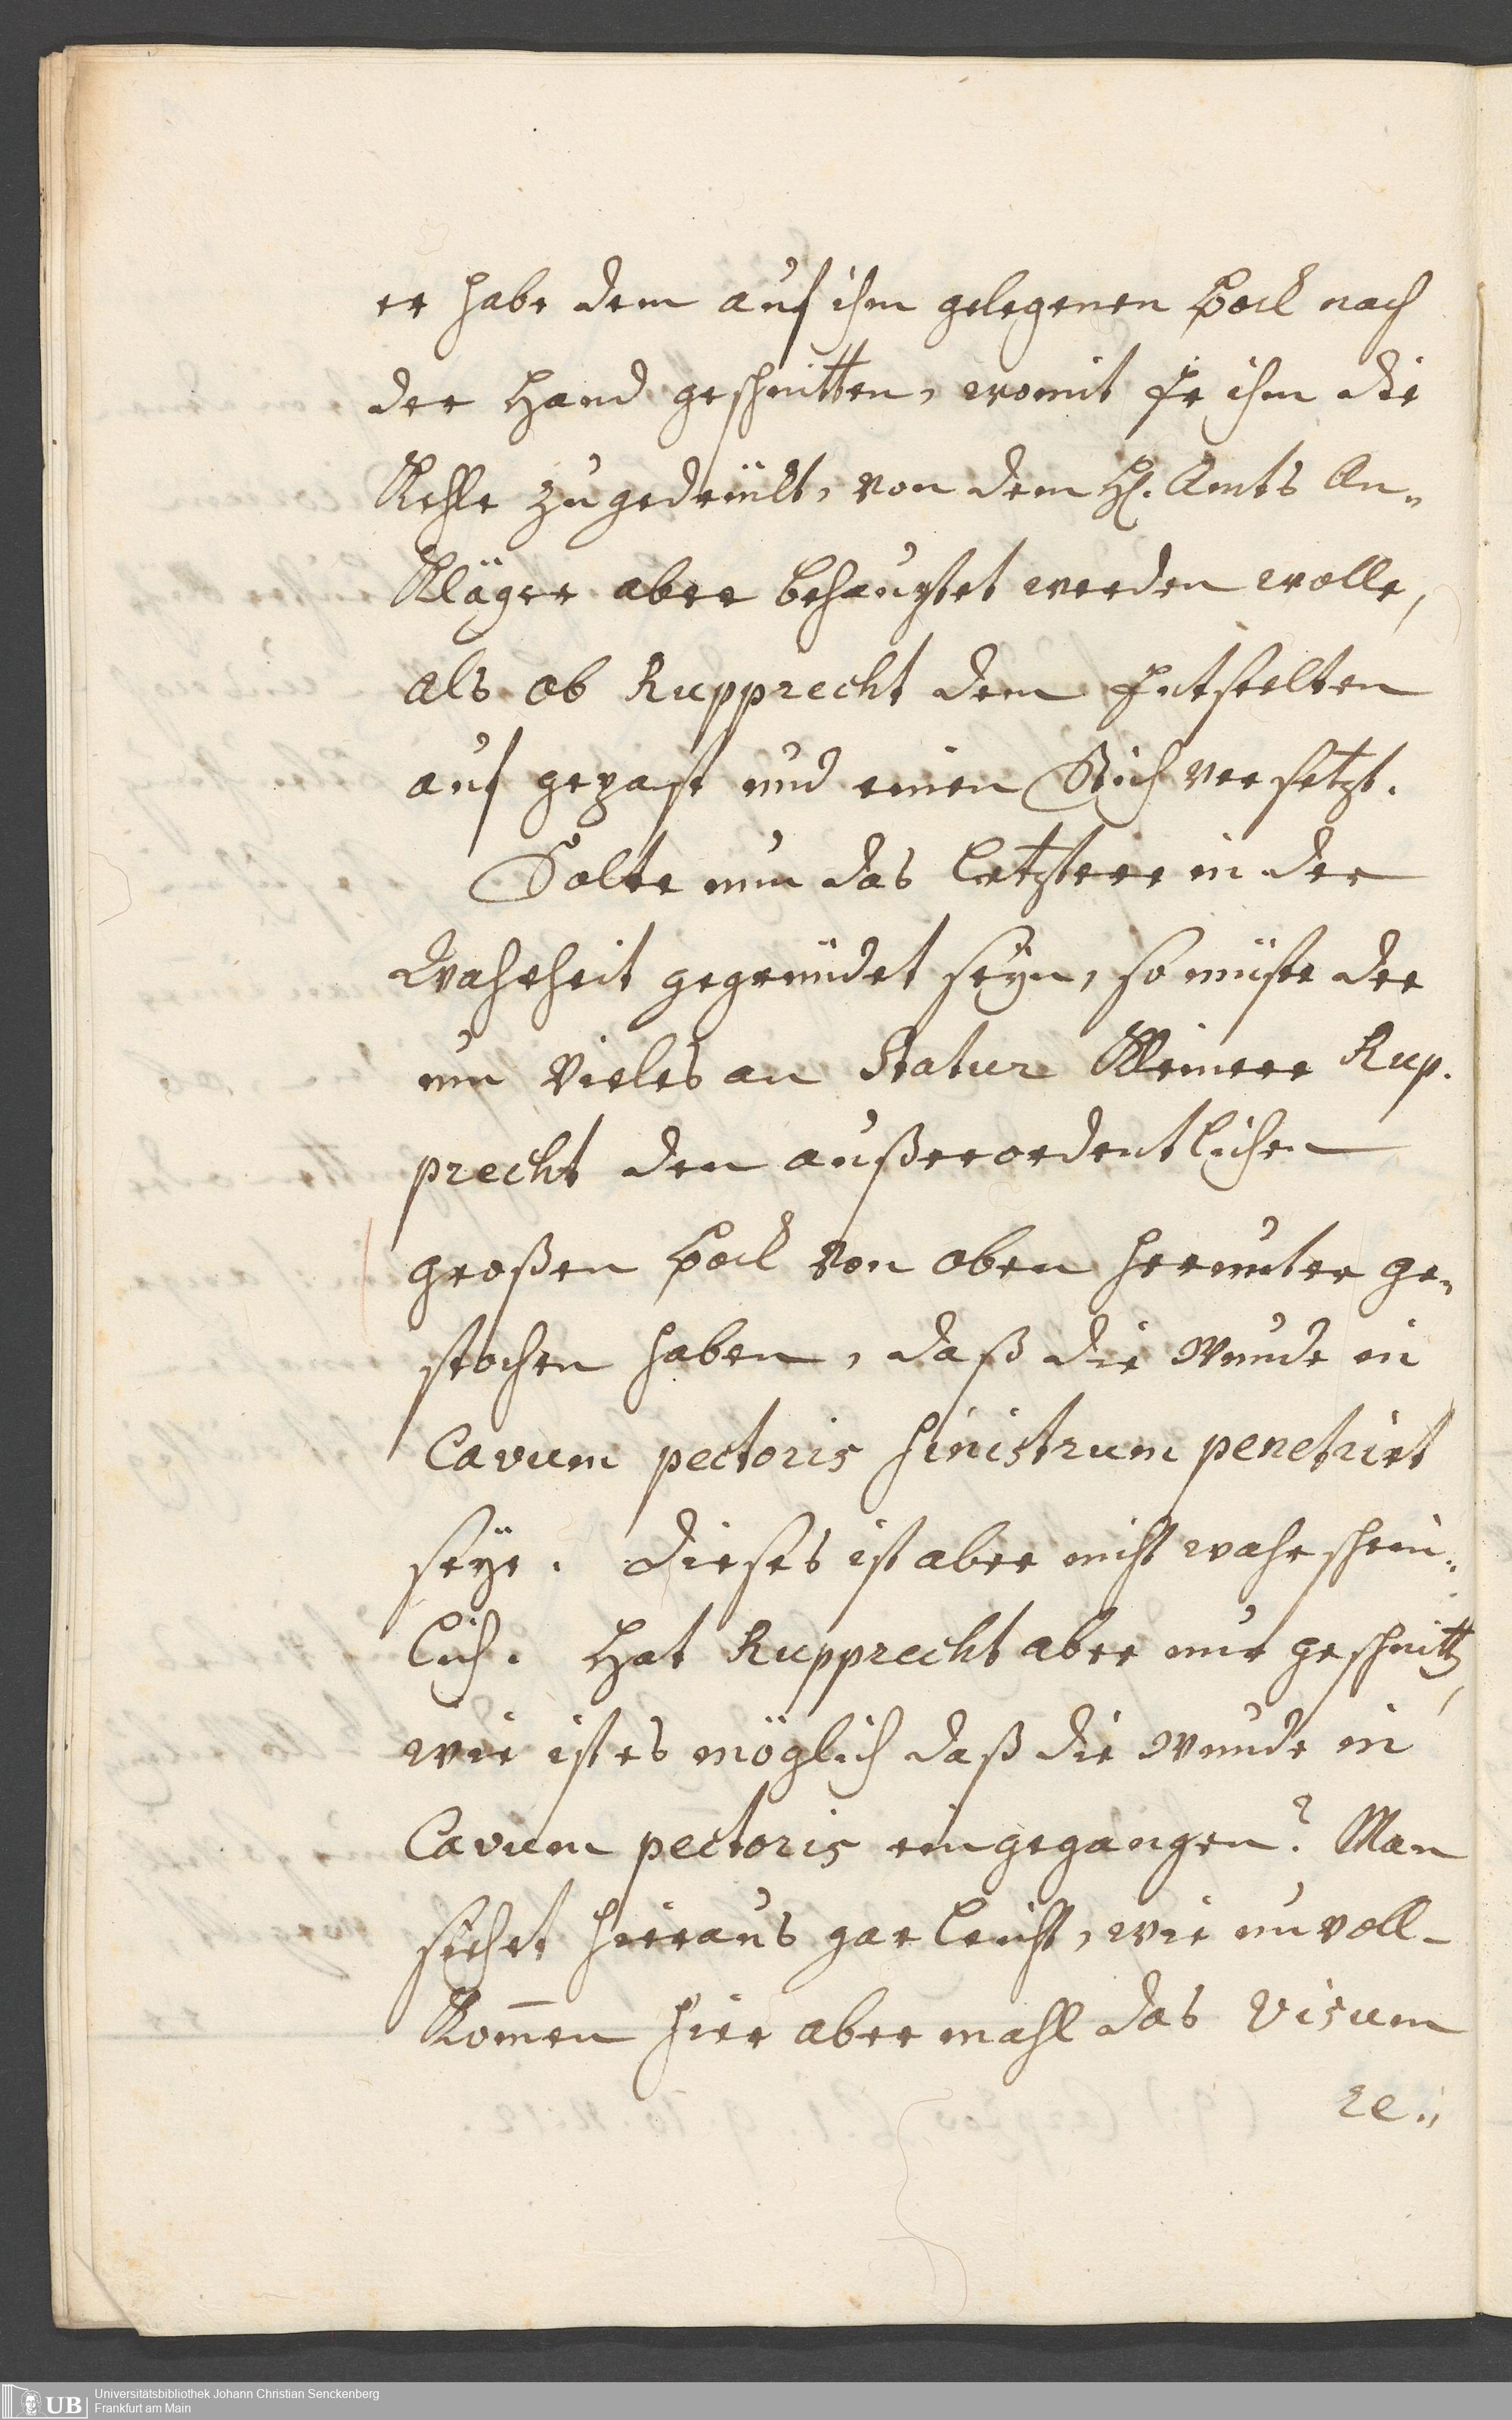 er habe dem auf ihm gelegenen Bock nach
der Hand geschnitten, womit Er ihm die
Kehle zugedrückt, von dem H. Amts An-
Kläger aber behauptet werden wolle,
als ob Rupprecht dem Entseelten
auf gepast und einen Stich versetzt.
Solte nun das letztere in der
Wahrheit gegründet seÿn, so müste der
um Vieles an Statur Kleinere Rup-
precht den außerordentlichen
großen Bock von oben herunter ge-
stochen haben, daß die Wunde in
Cavum pectoris sinistrum penetrirt
seÿe. Dieses ist aber nicht wahrschein-
lich. Hat Rupprecht aber nur geschnitten,
wie ist es möglich daß die Wunde in
Cavum pectoris eingegangen? Man
siehet hieraus gar leicht, wie unvoll-
Kom̄en hier abermahl das visum
re-
Universitätsbibliothek Johann Christian Senckenberg
Frankfurt am Main
UB